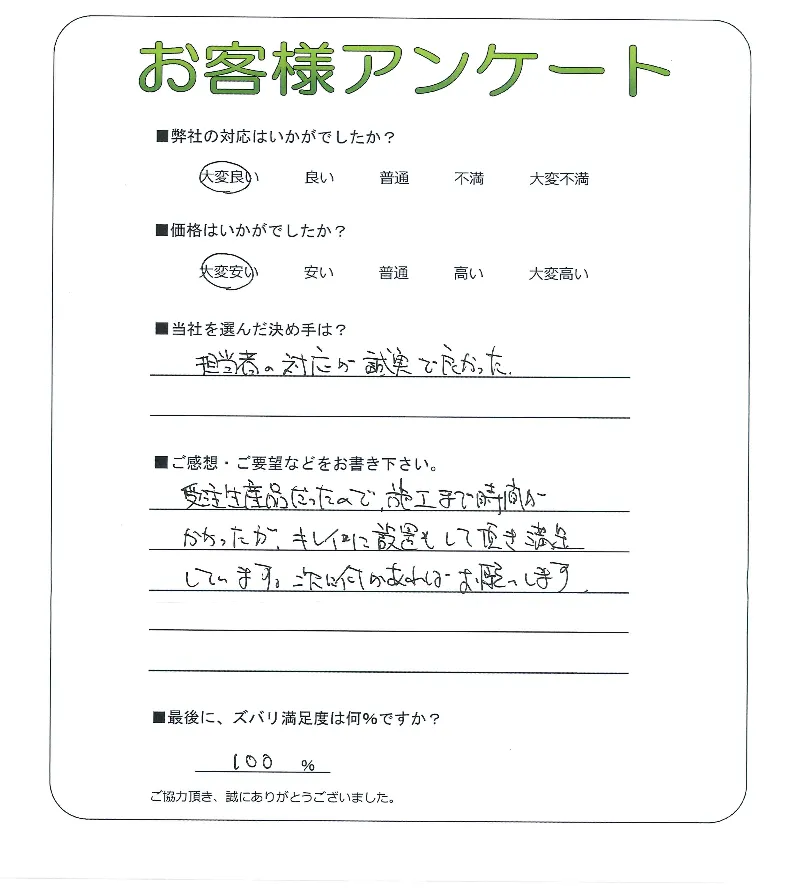 お客様アンケート
■弊社の対応はいかがでしたか？
大変良い 良い 普通 不満 大変不満
■価格はいかがでしたか？
大変安い 安い 普通 高い 大変高い
■当社を選んだ決め手は？
担当者の対応が誠実で良かった。
■ご感想・ご要望などをお書き下さい。
受注生産品だったので、施工まで時間が
かかったが、キレイに設置もして頂き満足
しています。次に何かあればお願いします。
■最後に、ズバリ満足度は何%ですか？
100 %
ご協力頂き、誠にありがとうございました。